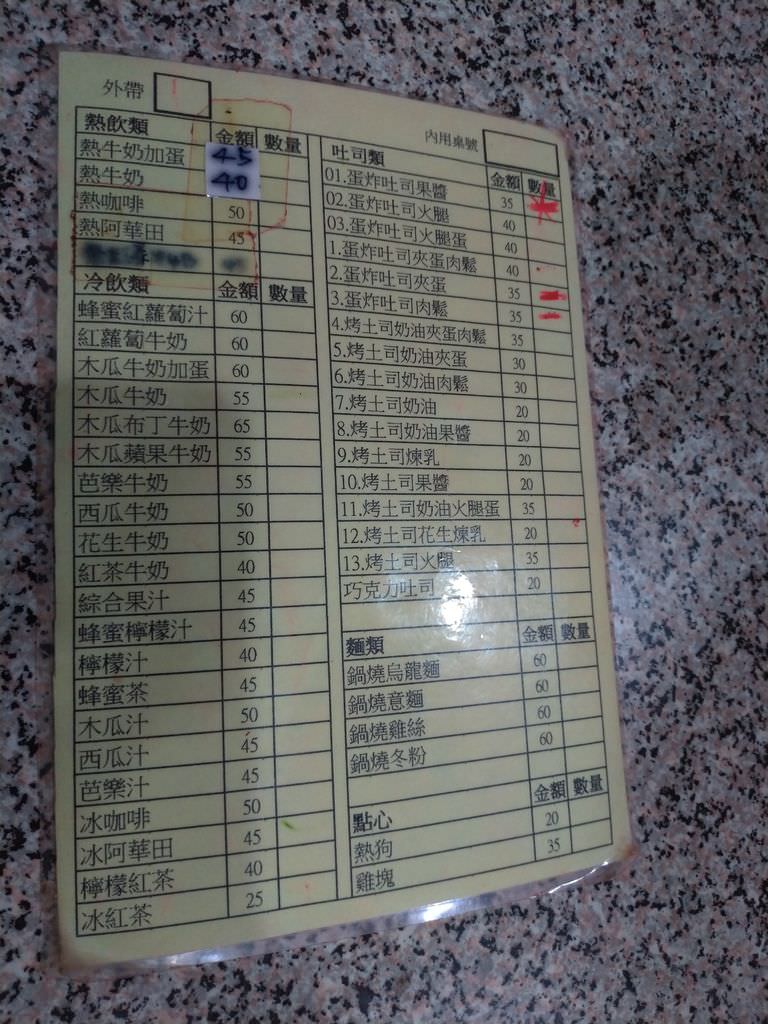 外帶
內用桌號
熱飲類 金額 數量
熱牛奶加蛋 45
熱牛奶 40
熱咖啡 50
熱阿華田 45
冷飲類 金額 數量
蜂蜜紅蘿蔔汁 60
紅蘿蔔牛奶 60
木瓜牛奶加蛋 60
木瓜牛奶 55
木瓜布丁牛奶 65
木瓜蘋果牛奶 55
芭樂牛奶 55
西瓜牛奶 50
花生牛奶 50
紅茶牛奶 40
綜合果汁 45
蜂蜜檸檬汁 45
檸檬汁 40
蜂蜜茶 45
木瓜汁 50
西瓜汁 45
芭樂汁 45
冰咖啡 50
冰阿華田 45
檸檬紅茶 40
冰紅茶 25
吐司類 金額 數量
01.蛋炸吐司果醬 35
02.蛋炸吐司火腿 40
03.蛋炸吐司火腿蛋 40
1.蛋炸吐司夾蛋肉鬆 40
2.蛋炸吐司夾蛋 35
3.蛋炸吐司肉鬆 35
4.烤土司奶油夾蛋肉鬆
5.烤土司奶油夾蛋 30
6.烤土司奶油肉鬆 30
7.烤土司奶油 20
8.烤土司奶油果醬 20
9.烤土司煉乳 20
10.烤土司果醬 20
11.烤土司奶油火腿蛋 35
12.烤土司花生煉乳 20
13.烤土司火腿 35
巧克力吐司 20
麵類 金額 數量
鍋燒烏龍麵 60
鍋燒意麵 60
鍋燒雞絲 60
鍋燒冬粉 60
點心 金額 數量
熱狗 20
雞塊 35